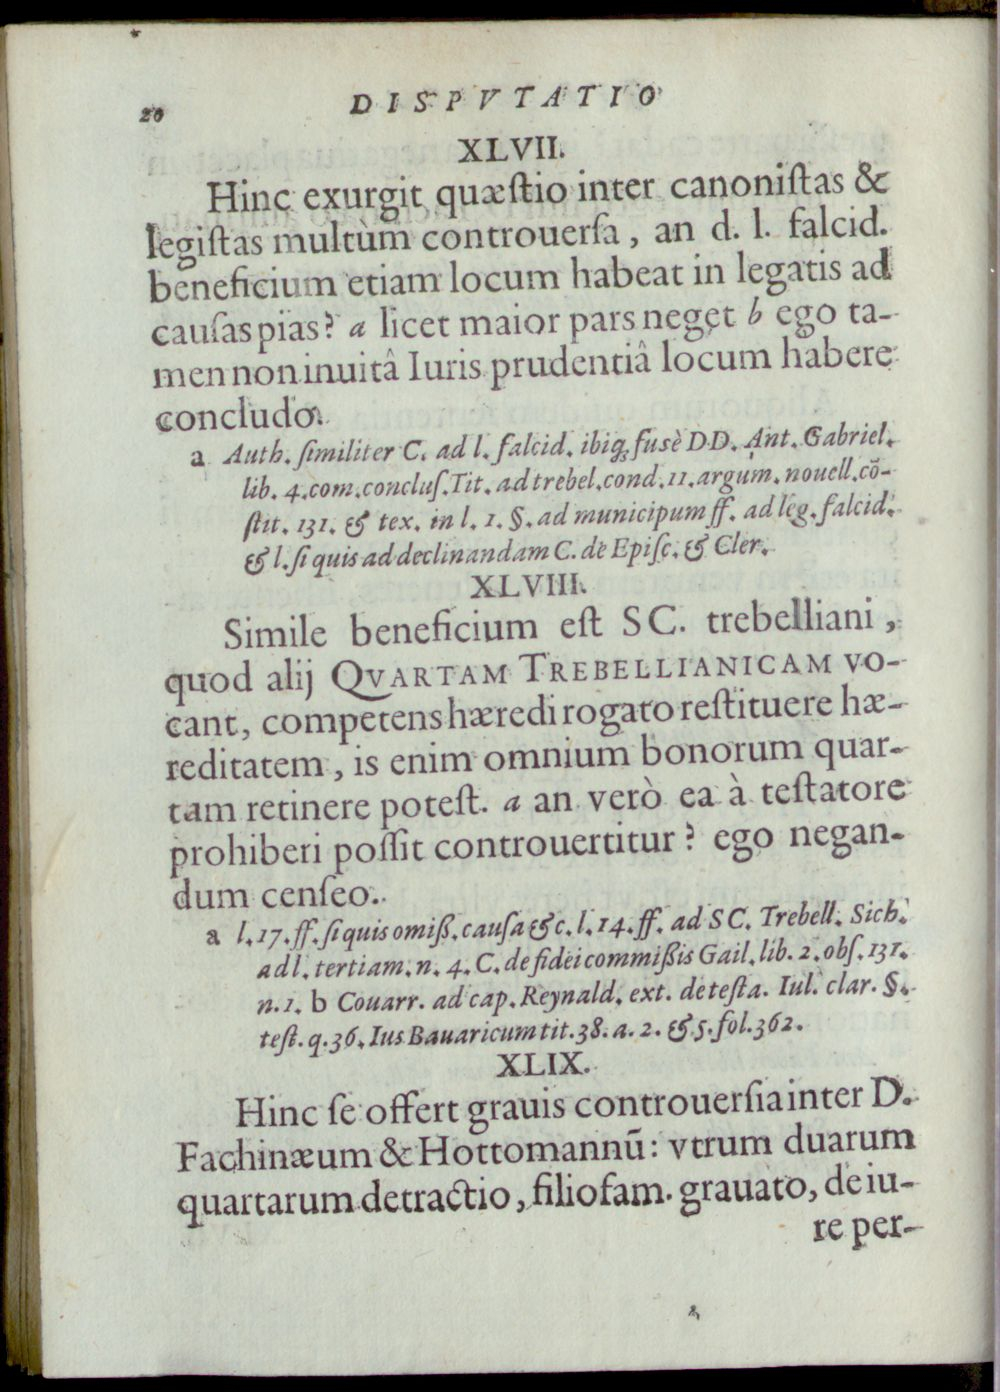 20 DISPVTATIO
XLVII.
Hinc exurgit quæſtio inter canoniſtas &
legiſtas multùm controuerſa, an d. l. falcid.
beneficium etiam locum habeat in legatis ad
cauſas pias? a licet maior pars neget b ego ta-
men non inuitâ Iuris prudentiâ locum habere
concludo.
a Auth. ſimiliter C. ad l. falcid. ibiq; fusè DD. Ant. Gabriel.
lib. 4. com. concluſ. Tit. ad trebel. cond. 11. argum. nouell. cō-
ſtit. 131. & tex. in l. 1. §. ad municipum ff. ad leg. falcid.
& l. ſi quis ad declinandam C. de Epiſc. & Cler.
XLVIII.
Simile beneficium eſt SC. trebelliani,
quod alij QVARTAM TREBELLIANICAM vo-
cant, competens hæredi rogato reſtituere hæ-
reditatem, is enim omnium bonorum quar-
tam retinere poteſt. a an verò ea à teſtatore
prohiberi poſſit controuertitur? ego negan-
dum cenſeo.
a l. 17. ff. ſi quis omiß. cauſa &c. l. 14. ff. ad SC. Trebell. Sich.
ad l. tertiam. n. 4. C. de fideicommißis Gail. lib. 2. obſ. 131.
n. 1. b Couarr. ad cap. Reynald. ext. de teſta. Iul. clar. §.
teſt. q. 36. Ius Bauaricum tit. 38. a. 2. & 5. fol. 362.
XLIX.
Hinc ſe offert grauis controuerſia inter D.
Fachinæum & Hottomannū: vtrum duarum
quartarum detractio, filiofam. grauato, de iu-
re per-